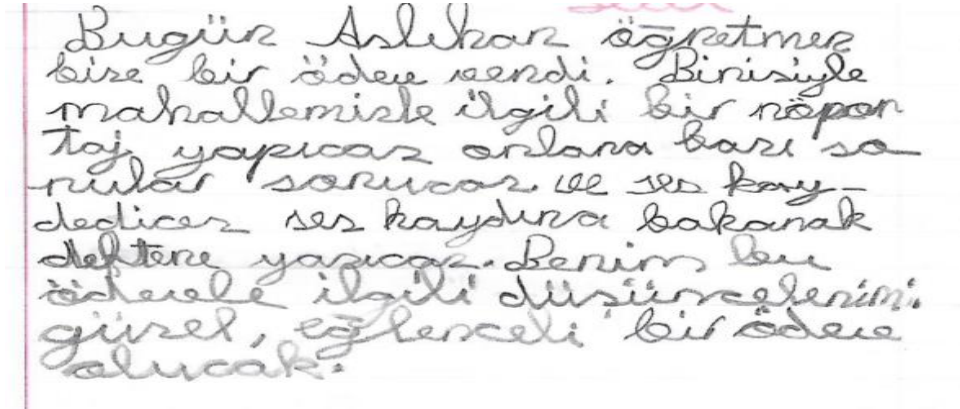 Bugün Aslıhan öğretmen
bize bir ödev verdi. Birisiyle
mahallemizle ilgili bir röpor
taj yapıcaz onlara bazı so
rular sorucaz ve ses kay-
dedicez ses kaydına bakarak
deftere yazıcaz. Benim bu
ödevle ilgili düşüncelerimi.
güzel, eğlenceli bir ödev
olucak.